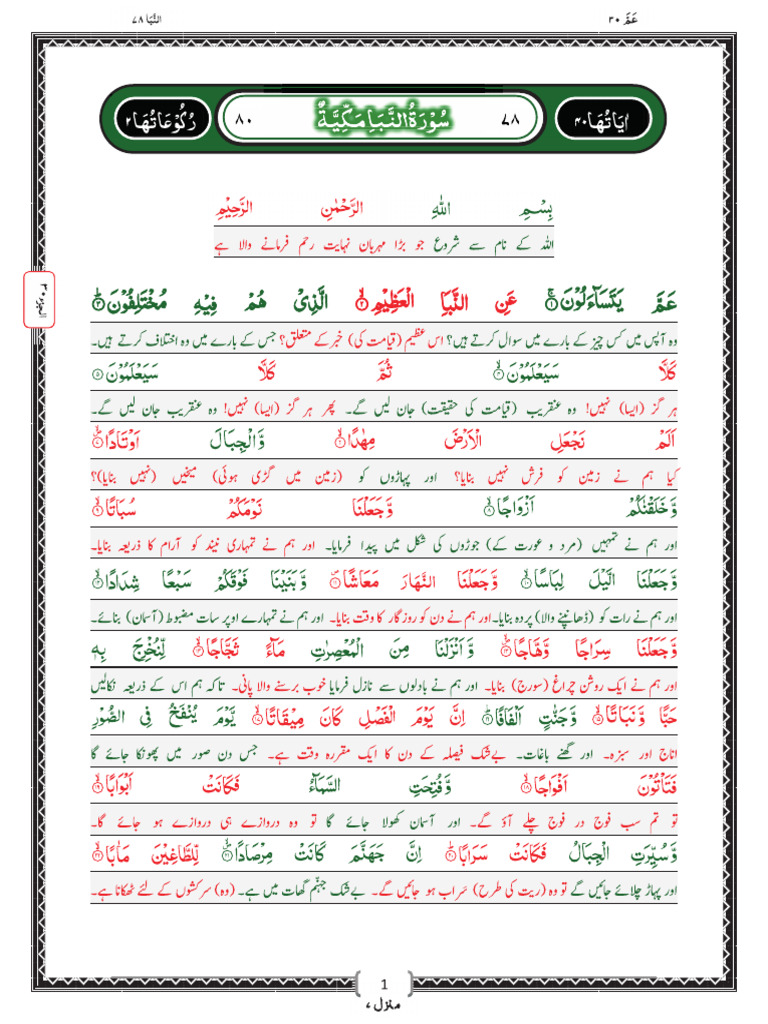 عَمَّ ۳۰
النَّبَا ۷۸
اٰیَاتُهَا ۴۰
۷۸
سُوْرَةُ النَّبَاِ مَكِّيَّةٌ
۸۰
رُكُوْعَاتُهَا ۲
بِسْمِ اللّٰهِ الرَّحْمٰنِ الرَّحِيْمِ
اللہ کے نام سے شروع جو بڑا مہربان نہایت رحم فرمانے والا ہے
عَمَّ يَتَسَآءَلُوْنَ ۱ عَنِ النَّبَاِ الْعَظِيْمِ ۲ الَّذِيْ هُمْ فِيْهِ مُخْتَلِفُوْنَ ۳
وہ آپس میں کس چیز کے بارے میں سوال کرتے ہیں؟ اس عظیم (قیامت کی) خبر کے متعلق؟ جس کے بارے میں وہ اختلاف کرتے ہیں۔
كَلَّا سَيَعْلَمُوْنَ ۴ ثُمَّ كَلَّا سَيَعْلَمُوْنَ ۵
ہر گز (ایسا) نہیں! وہ عنقریب (قیامت کی حقیقت) جان لیں گے۔ پھر ہر گز (ایسا) نہیں! وہ عنقریب جان لیں گے۔
اَلَمْ نَجْعَلِ الْاَرْضَ مِهٰدًا ۶ وَّالْجِبَالَ اَوْتَادًا ۷
کیا ہم نے زمین کو فرش نہیں بنایا؟ اور پہاڑوں کو (زمین میں گڑی ہوئی) میخیں (نہیں بنایا)؟
وَّخَلَقْنٰكُمْ اَزْوَاجًا ۸ وَّجَعَلْنَا نَوْمَكُمْ سُبَاتًا ۹
اور ہم نے تمہیں (مرد و عورت کے) جوڑوں کی شکل میں پیدا فرمایا۔ اور ہم نے تمہاری نیند کو آرام کا ذریعہ بنایا۔
وَّجَعَلْنَا الَّيْلَ لِبَاسًا ۱۰ وَّجَعَلْنَا النَّهَارَ مَعَاشًا ۱۱ وَّبَنَيْنَا فَوْقَكُمْ سَبْعًا شِدَادًا ۱۲
اور ہم نے رات کو (ڈھانپنے والا) پردہ بنایا۔ اور ہم نے دن کو روزگار کا وقت بنایا۔ اور ہم نے تمہارے اوپر سات مضبوط (آسمان) بنائے۔
وَّجَعَلْنَا سِرَاجًا وَّهَّاجًا ۱۳ وَّاَنْزَلْنَا مِنَ الْمُعْصِرٰتِ مَآءً ثَجَّاجًا ۱۴ لِّنُخْرِجَ بِهٖ
اور ہم نے ایک روشن چراغ (سورج) بنایا۔ اور ہم نے بادلوں سے نازل فرمایا خوب برسنے والا پانی۔ تاکہ ہم اس کے ذریعہ نکالیں
حَبًّا وَّنَبَاتًا ۱۵ وَّجَنّٰتٍ اَلْفَافًا ۱۶ اِنَّ يَوْمَ الْفَصْلِ كَانَ مِيْقَاتًا ۱۷ يَّوْمَ يُنْفَخُ فِي الصُّوْرِ
اناج اور سبزہ۔ اور گھنے باغات۔ بے شک فیصلہ کے دن کا ایک مقررہ وقت ہے۔ جس دن صور میں پھونکا جائے گا
فَتَاْتُوْنَ اَفْوَاجًا ۱۸ وَّفُتِحَتِ السَّمَآءُ فَكَانَتْ اَبْوَابًا ۱۹
تو تم سب فوج در فوج چلے آؤ گے۔ اور آسمان کھولا جائے گا تو وہ دروازے ہی دروازے ہو جائے گا۔
وَّسُيِّرَتِ الْجِبَالُ فَكَانَتْ سَرَابًا ۲۰ اِنَّ جَهَنَّمَ كَانَتْ مِرْصَادًا ۲۱ لِّلطَّاغِيْنَ مَاٰبًا ۲۲
اور پہاڑ چلائے جائیں گے تو وہ (ریت کی طرح) سَراب ہو جائیں گے۔ بے شک جہنّم گھات میں ہے۔ (وہ) سرکشوں کے لئے ٹھکانا ہے۔
1
منزل ۷